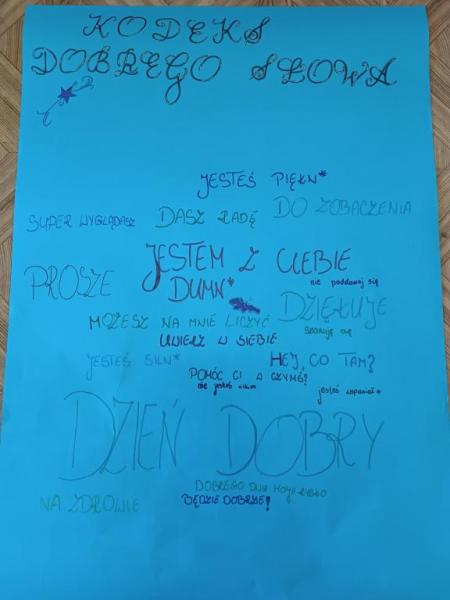 KODEKS
DOBREGO SŁOWA
JESTEŚ PIĘKN*
SUPER WYGLĄDASZ
DASZ RADĘ
DO ZOBACZENIA
JESTEM Z CIEBIE
DUMN*
PROSZE
nie poddawaj się
DZIĘKUJE
MOŻESZ NA MNIE LICZYĆ
Szanuję cię
UWIERZ W SIEBIE
JESTEŚ SILN*
HEJ, CO TAM?
POMÓC CI W CZYMŚ?
nie jesteś
jesteś wspaniał*
DZIEŃ DOBRY
DOBREGO DNIA
NA ZDROWIE
BĘDZIE DOBRZE!